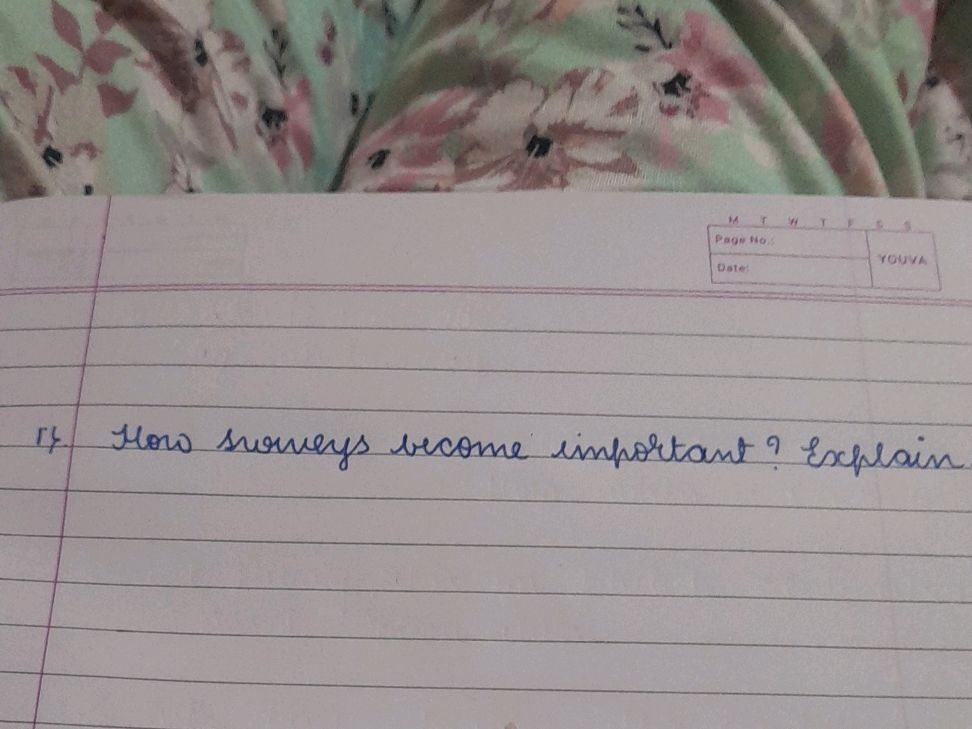 M T W T F S S
Page No.:
YOUVA
Date:
17. How surveys become important? Explain.